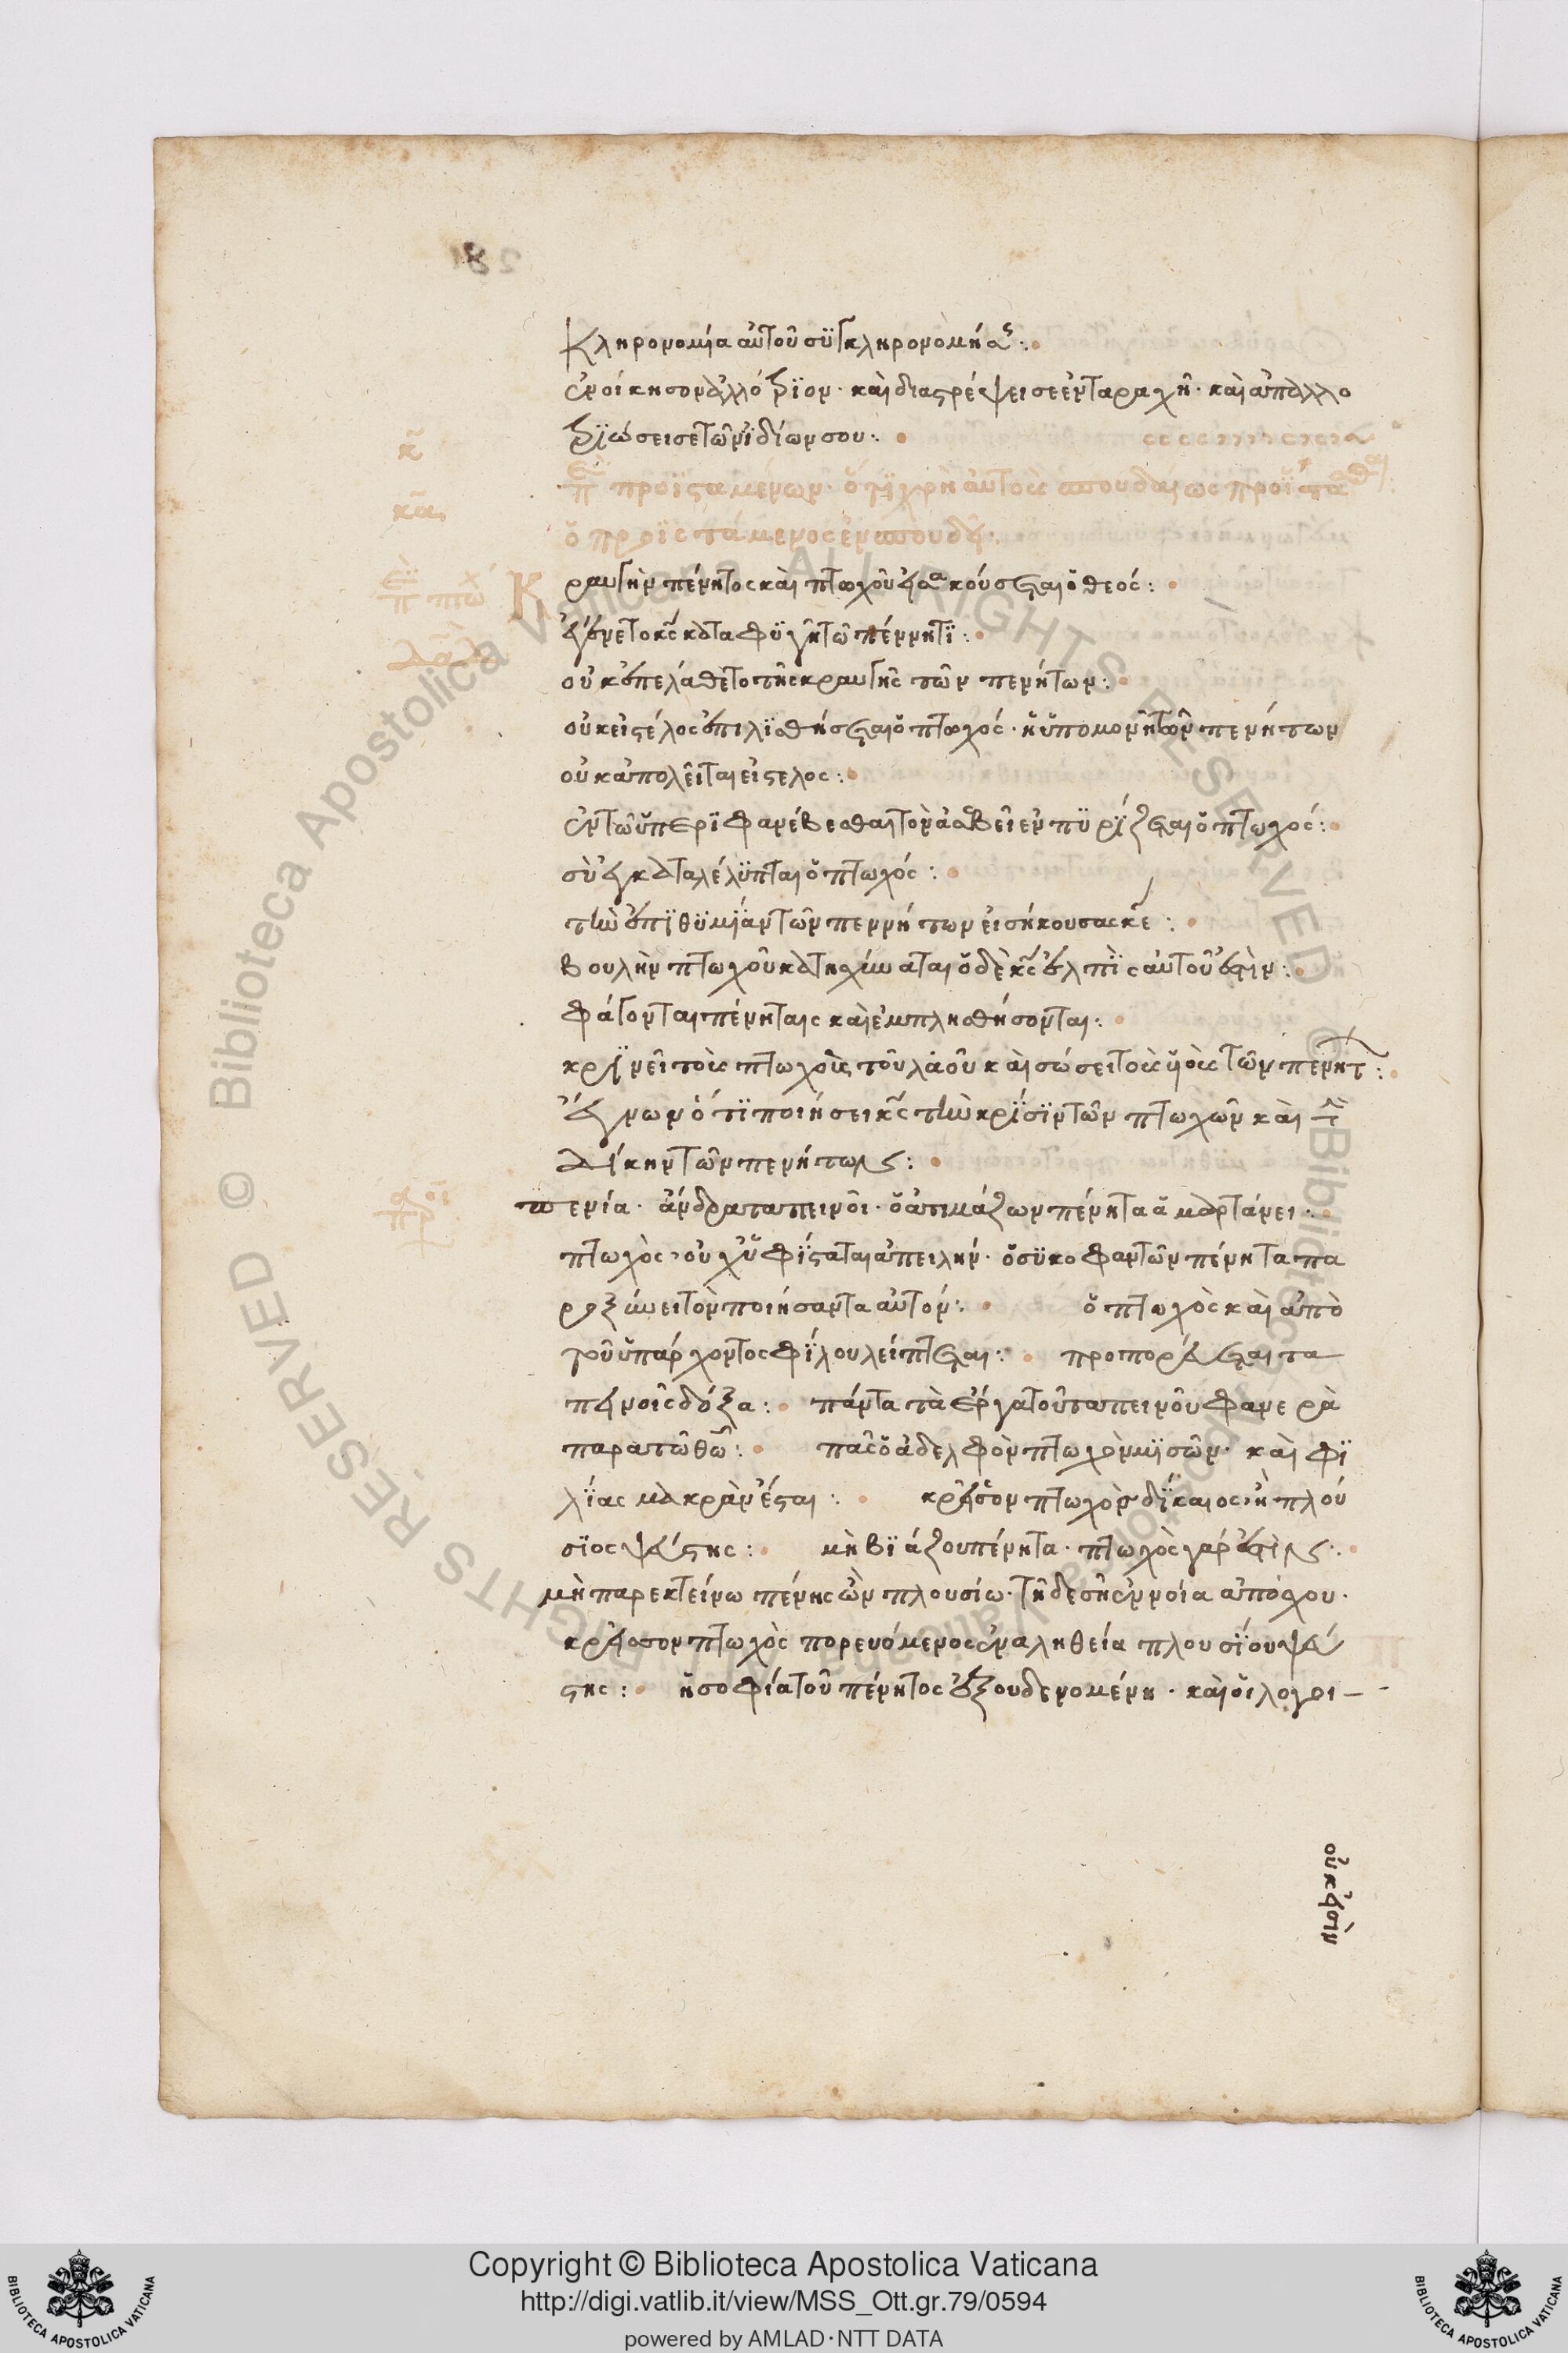 Κληρονομία αὐτοῦ συγκληρονομής:
ἐνοίκησον ἀλλότριον· καὶ διαστρέψει σε ἐν ταραχῆ· καὶ ἀπαλλο
τριώσει σε τῶν ϊδίων σου:
προϊσταμένων· ὅτι χρὴ αὐτοὺς σπουδαίως προΐστασθαι:
ὁ προϊστάμενος ἐν σπουδῆ:
Κραυγὴν πένητος καὶ πτωχοῦ εἰσακούσεται ὁ θεός:
ἐγένετο κς καταφυγὴ τῶ πέννητι:
οὐκ ἐπελάθετο τῆς κραυγῆς τῶν πενήτων:
οὐκ εἰς τέλος ἐπιλισθήσεται ὁ πτωχός· ἡ ὑπομονὴ τῶν πενήτων
οὐκ ἀπολεῖται εἰς τελος:
ἐν τῶ ὑπεριφανέβεσθαι τὸν ἀσεβεῖ ἐνπυρίζεται ὁ πτωχός:
σὺ ἐγκαταλέλυπται ὁ πτωχός:
τὴν ἐπιθυμίαν τῶν πεννήτων εἰσήκουσας κε:
βουλὴν πτωχοῦ κατησχύνατε ὁ δὲ κς ἐλπὶς αὐτοῦ ἐστὶν:
φάγονται πένηταις καὶ ἐμπλησθήσονται:
κρινεῖ τοὺς πτωχοὺς τοῦ λαοῦ καὶ σώσει τοὺς υἱοὺς τῶν πενήτ:
ἔγνων ὅτι ποιήσει κς τὴν κρίσιν τῶν πτωχῶν καὶ τὴν
δίκην τῶν πενήτων:
πενία· ἄνδρα ταπεινοῖ· ὁ ἀτιμάζων πένητα ἁμαρτάνει:
πτωχὸς οὐχ ὑφίσταται ἀπειλήν· ὁ συκοφαντῶν πένητα πα
ροξύνει τὸν ποιήσαντα αὐτόν: ὁ πτωχὸς καὶ ἀπὸ
τοῦ ὑπάρχοντος φίλου λείπεται: προπορεύεται τα
πεινοῖς δόξα: πάντα τὰ ἔργα τοῦ ταπεινοῦ φανερὰ
παρὰ τῶ θῶ: πᾶς ὁ ἀδελφὸν πτωχὸν μισῶν· καὶ φι
λίας μακρὰν ἔσται: κρεῖσσον πτωχὸς δίκαιος· ἢ πλού
σιος ψεύστης: μὴ βιάζου πένητα· πτωχὸς γάρ ἐστιν:
μὴ παρεκτείνω πένης ὢν πλουσίω· τῆ δε σῆ ἐννοία ἀπόσχου·
κρεῖσσον πτωχὸς πορευόμενος ἐν αληθεία πλουσίου ψεύ
στης: ἡ σοφία τοῦ πένητος ἐξουδενομένη· καὶ οἱ λόγοι
οὐκ εἰσὶν
Copyright © Biblioteca Apostolica Vaticana
http://digi.vatlib.it/view/MSS_Ott.gr.79/0594
powered by AMLAD·NTT DATA